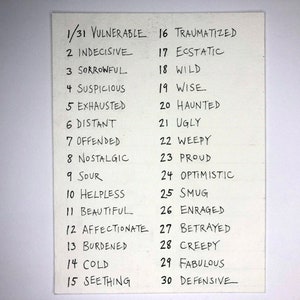 1/31 VULNERABLE
2 INDECISIVE
3 SORROWFUL
4 SUSPICIOUS
5 EXHAUSTED
6 DISTANT
7 OFFENDED
8 NOSTALGIC
9 SOUR
10 HELPLESS
11 BEAUTIFUL
12 AFFECTIONATE
13 BURDENED
14 COLD
15 SEETHING
16 TRAUMATIZED
17 ECSTATIC
18 WILD
19 WISE
20 HAUNTED
21 UGLY
22 WEEPY
23 PROUD
24 OPTIMISTIC
25 SMUG
26 ENRAGED
27 BETRAYED
28 CREEPY
29 FABULOUS
30 DEFENSIVE